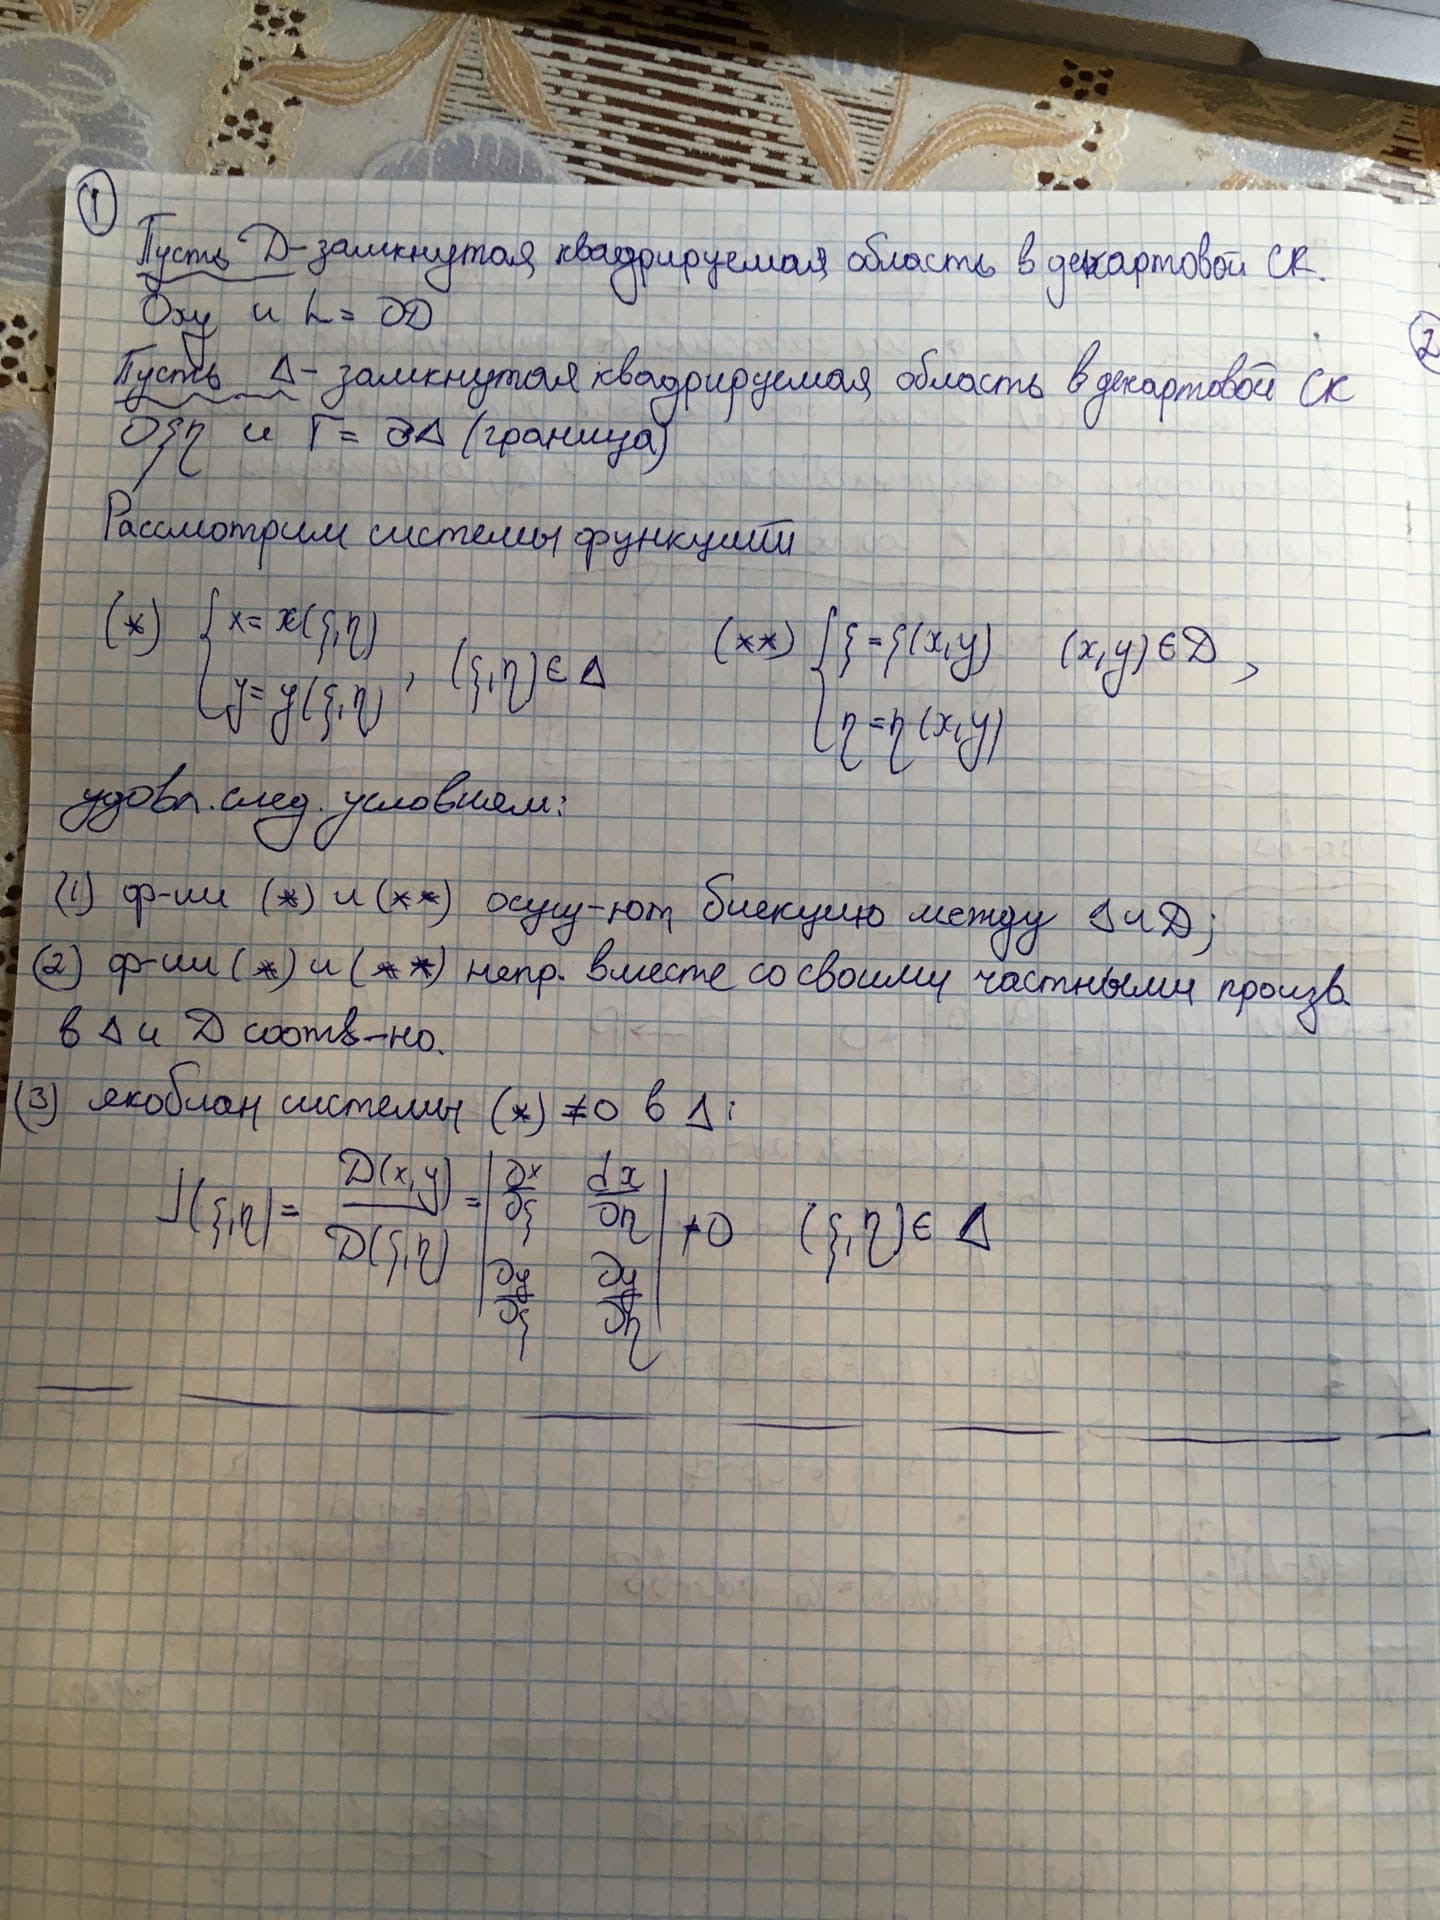 1
Пусть D - замкнутая квадрируемая область в декартовой СК.
Oxy и L = ∂D
Пусть Δ - замкнутая квадрируемая область в декартовой СК
Oξη и Γ = ∂Δ (граница)
Рассмотрим системы функций
(*) { x = x(ξ,η) y = y(ξ,η) , (ξ,η) ∈ Δ (**) { ξ = ξ(x,y) η = η(x,y) (x,y) ∈ D ,
удовл. след. условиям:
(1) ф-ии (*) и (**) осущ-ют биекцию между Δ и D;
(2) ф-ии (*) и (**) непр. вместе со своими частными произв.
в Δ и D соотв-но.
(3) якобиан системы (*) ≠ 0 в Δ:
J(ξ,η) = D(x,y)/D(ξ,η) = | ∂x/∂ξ dx/∂η ∂y/∂ξ ∂y/∂η | ≠ 0 (ξ,η) ∈ Δ
2